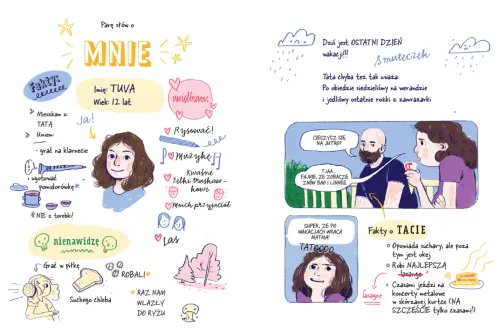 Parę słów o
MNIE
Fakty:
Imię: TUVA
Wiek: 12 lat
Ja!
uwielbiam:
Mieszkam z
TATĄ
Umiem:
- grać na klarnecie
- ugotować
pomidorówkę*
*NIE z torebki!
Rysować!
Muzykę
Kwaśne
żelki
Moich przyjaciół
Las
nienawidzę
Grać w piłkę
Suchego chleba
ROBALI
*RAZ NAM
WLAZŁY
DO RYŻU
Dziś jest OSTATNI DZIEŃ
wakacji!!!
Smuteczek
Tata chyba też tak uważa.
Po obiedzie siedzieliśmy na werandzie
i jedliśmy ostatnie rożki z zamrażarki
CIESZYSZ SIĘ
NA JUTRO?
TJAA...
FAJNIE, ŻE ZOBACZĘ
ZNÓW BAO I LINNÉĘ
SUPER, ŻE PO
WAKACJACH WRACA
MATMA!
TATOOOO
Fakty o TACIE
Opowiada suchary, ale poza
tym jest okej
Robi NAJLEPSZĄ
lasange
lasagne
Czasami jeździ na
koncerty metalowe
w skórzanej kurtce (NA
SZCZĘŚCIE tylko czasami!)